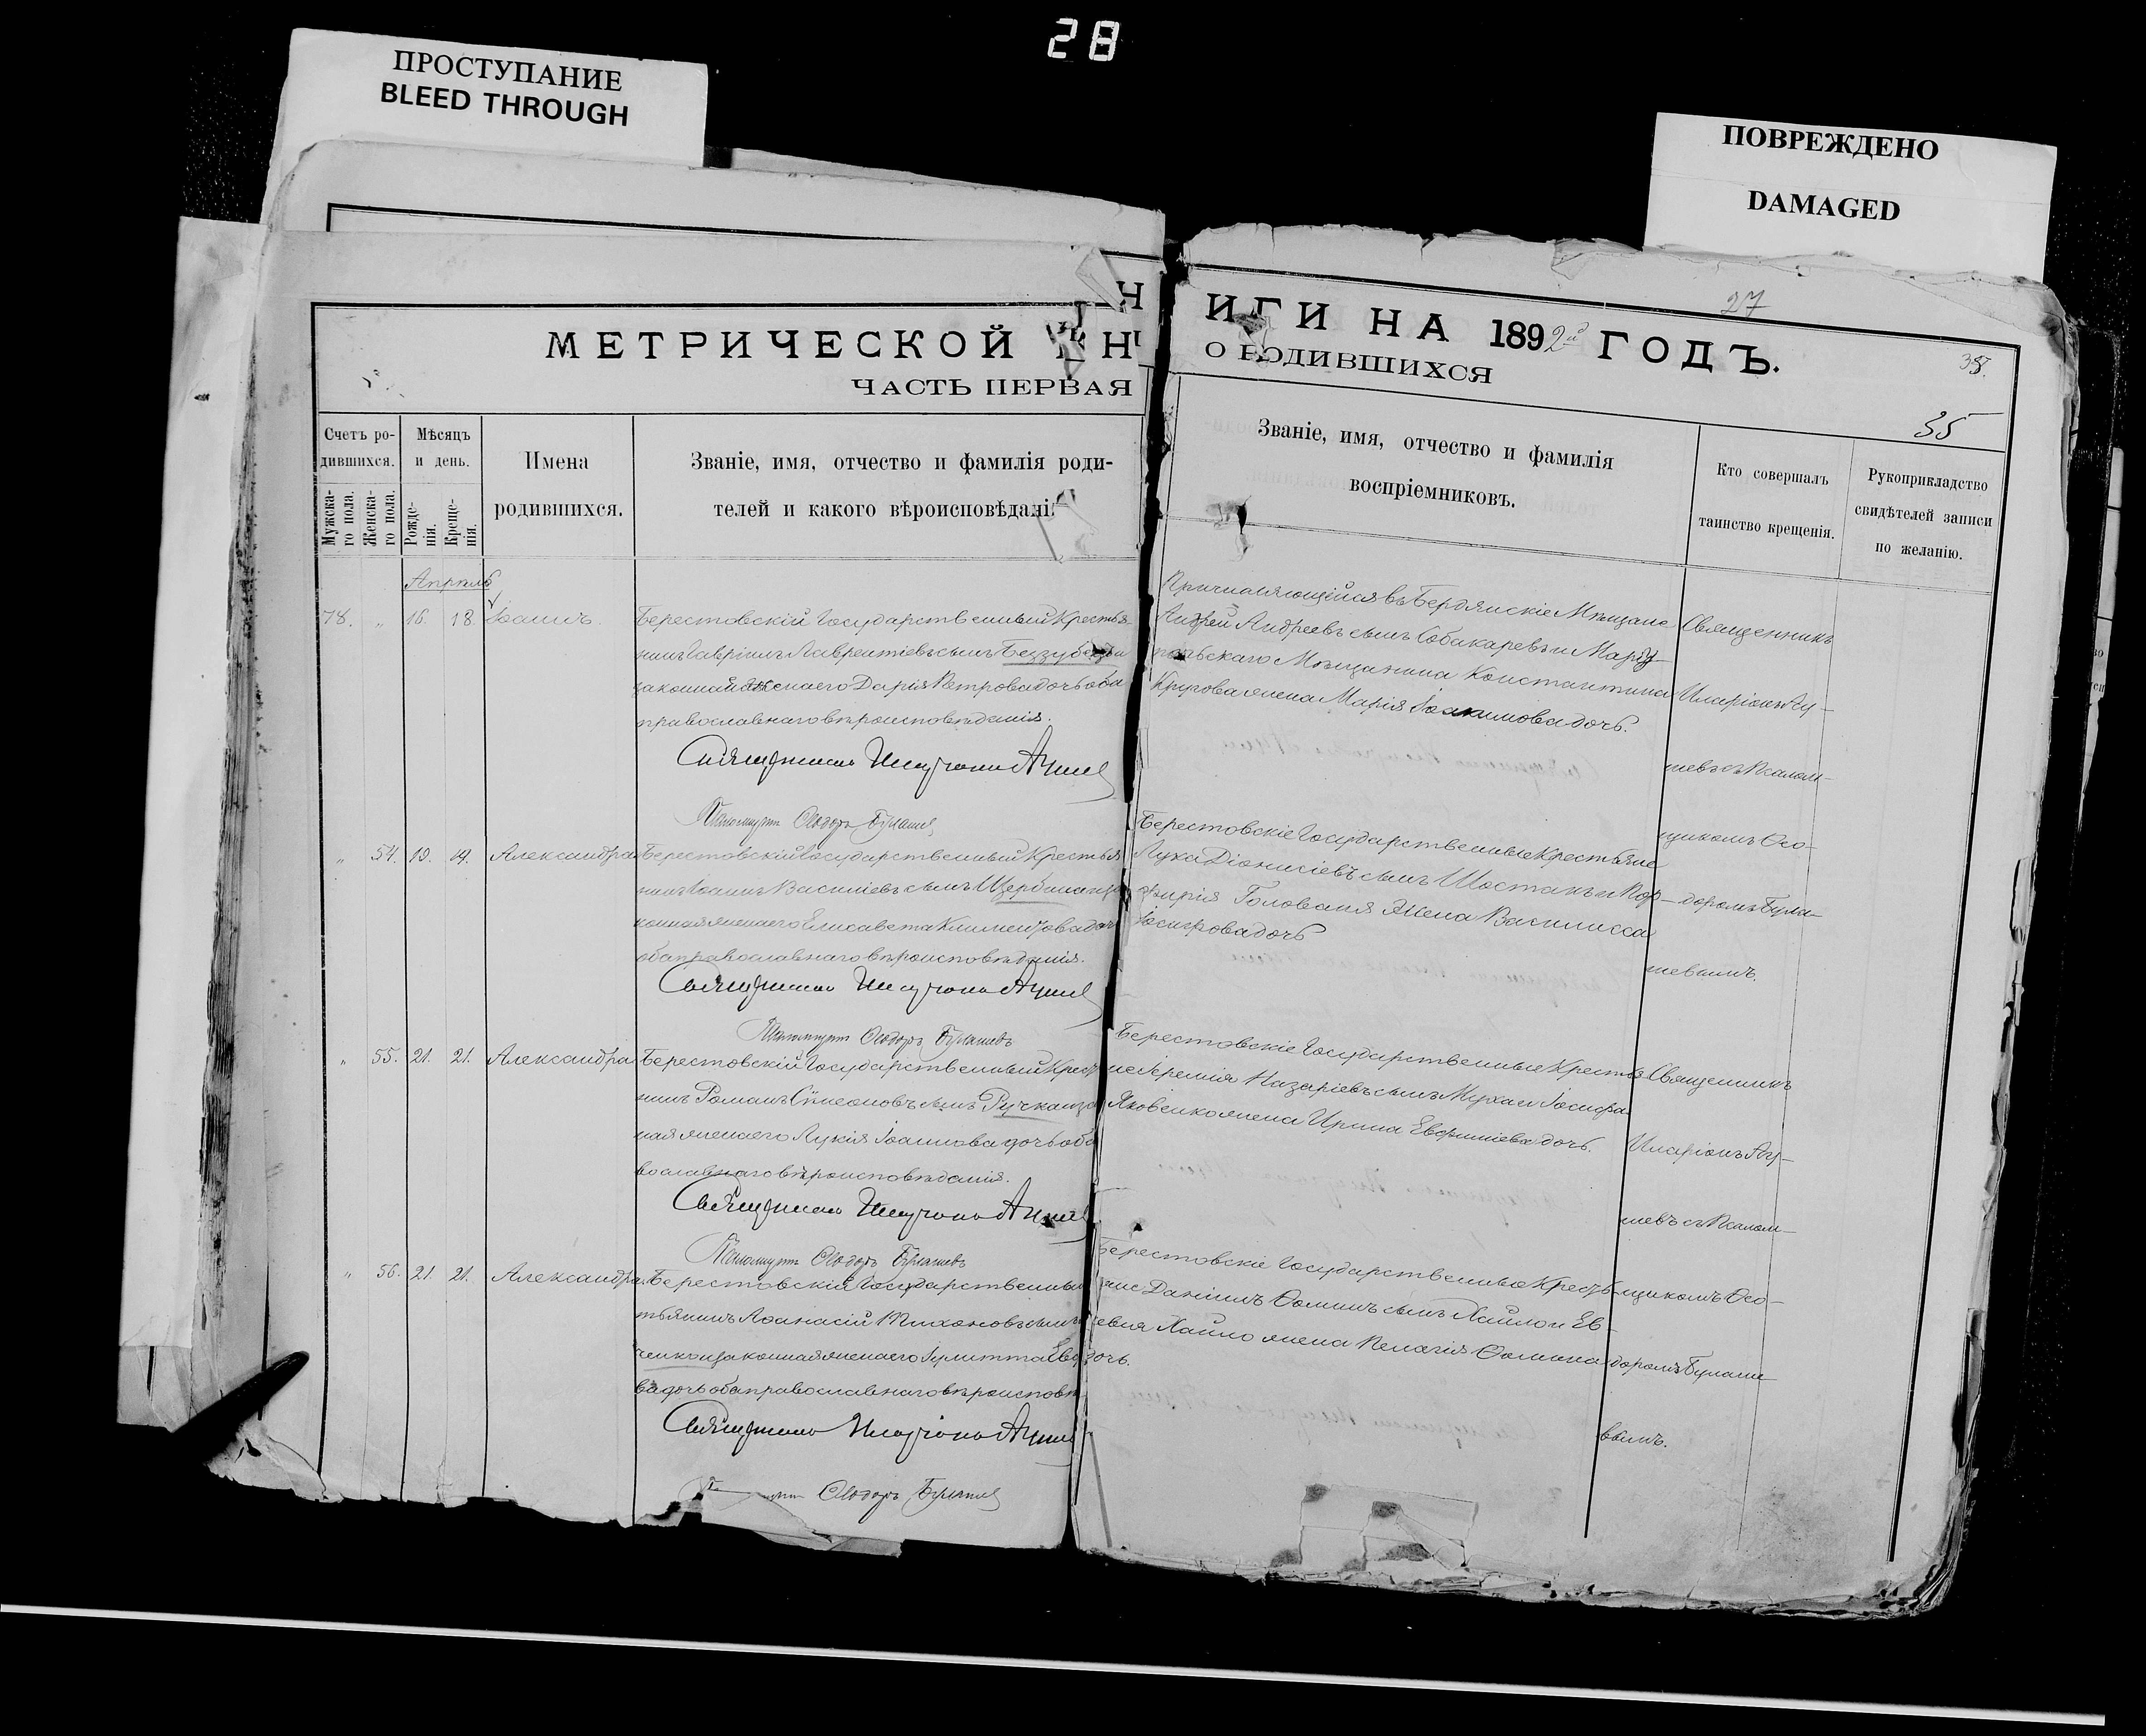 28
ПРОСТУПАНИЕ
BLEED THROUGH
ПОВРЕЖДЕНО
DAMAGED
27
МЕТРИЧЕСКОЙ КН
ИГИ НА 1892й ГОДЪ.
ЧАСТЬ ПЕРВАЯ
О РОДИВШИХСЯ
35
Счетъ ро-
дившихся.
Мужска-
го пола.
Женска-
го пола.
Мѣсяцъ
и день.
Рожде-
нія.
Креще-
нія.
Имена
родившихся.
Званіе, имя, отчество и фамилія роди-
телей и какого вѣроисповѣдані
Званіе, имя, отчество и фамилія
воспріемниковъ.
Кто совершалъ
таинство крещенія.
Рукоприкладство
свидѣтелей записи
по желанію.
Апрѣль
78. " 16. 18. Іоаннъ.
Берестовскій Государственный Крестья
нинъ Гавріилъ Лаврентіевъ сынъ
законная жена его Дарія Петрова дочь оба
православнаго вѣроисповѣданія.
Священникъ Иларіонъ
Псаломщикъ Ѳеодоръ
Причисляющійся въ Бердянскіе Мѣщане
Андрей Андреевъ сынъ Собакаревъ и Маріу-
польскаго Мѣщанина Константина
Кругова жена Марія Іоакимова дочь.
Священникъ
Иларіонъ
съ Псалом-
щикомъ Ѳео-
доромъ
" 54. 19. 19. Александра
Берестовскій Государственный Крестья
нинъ Іоаннъ Василіевъ сынъ
конная жена его Елисавета Климентова доч
оба православнаго вѣроисповѣданія.
Священникъ Иларіонъ
Псаломщикъ Ѳеодоръ
Берестовскіе Государственные Крестьяне
Лука Діонисіевъ сынъ Шостакъ и Пор-
фирія Голованя жена Василисса
Іосифова дочь
" 55. 21. 21. Александра
Берестовскій Государственный Крест
нинъ Романъ Сѵмеоновъ сынъ Ручка и за
ная жена его Лукія Іоаннова дочь оба
вославнаго вѣроисповѣданія.
Священникъ Иларіонъ
Псаломщикъ Ѳеодоръ
Берестовскіе Государственные Крестья
не Іеремія Назаріевъ сынъ Муха и Іосифа
Яковенко жена Ирина Евфиміева дочь.
Священникъ
Иларіонъ
съ Псалом-
щикомъ Ѳео-
доромъ
" 56. 21. 21. Александра
Берестовскій Государственный
тьянинъ Аѳанасій Тихоновъ сынъ
ченко и законная жена его Іулитта
ва дочь оба православнаго вѣроисповѣ
Священникъ Иларіонъ
Ѳеодоръ
Берестовскіе Государственные Крестья
не Даніилъ Ѳоминъ сынъ Хайло и Ев-
Хайло жена Пелагія Ѳомина
дочь.